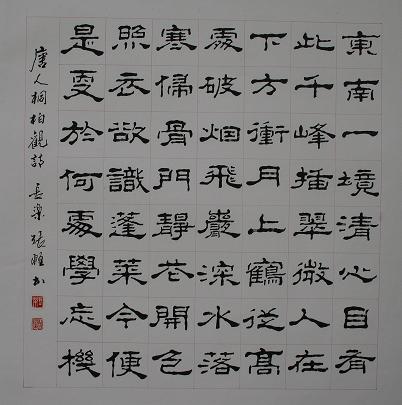 東南一境清心目有
此千峰插翠微人在
下方衝月上鶴從高
處破烟飛巖深水落
寒侵骨門靜花開色
照衣欲識蓬萊今便
是更於何處學忘機
唐人桐柏觀詩 長樂 張 书